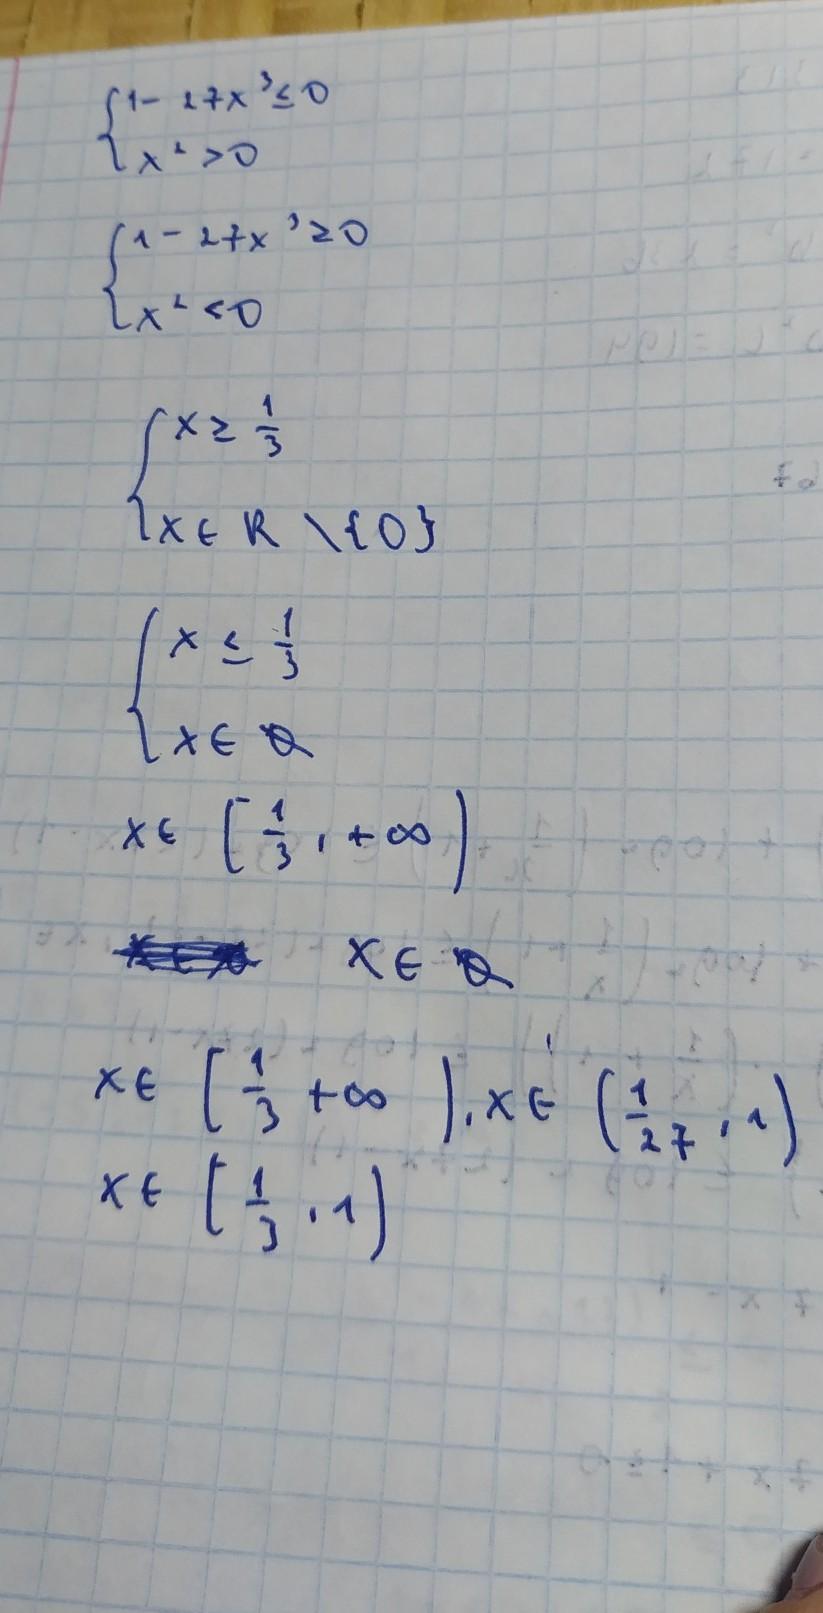 {1 - 27x³ ≤ 0
{x² > 0
{1 - 27x³ ≥ 0
{x² < 0
{x ≥ 1/3
{x ∈ R \ {0}
{x ≤ 1/3
{x ∈ Ø
x ∈ [1/3, +∞)
x ∈ Ø
x ∈ [1/3 +∞), x ∈ (1/27, 1)
x ∈ [1/3, 1)